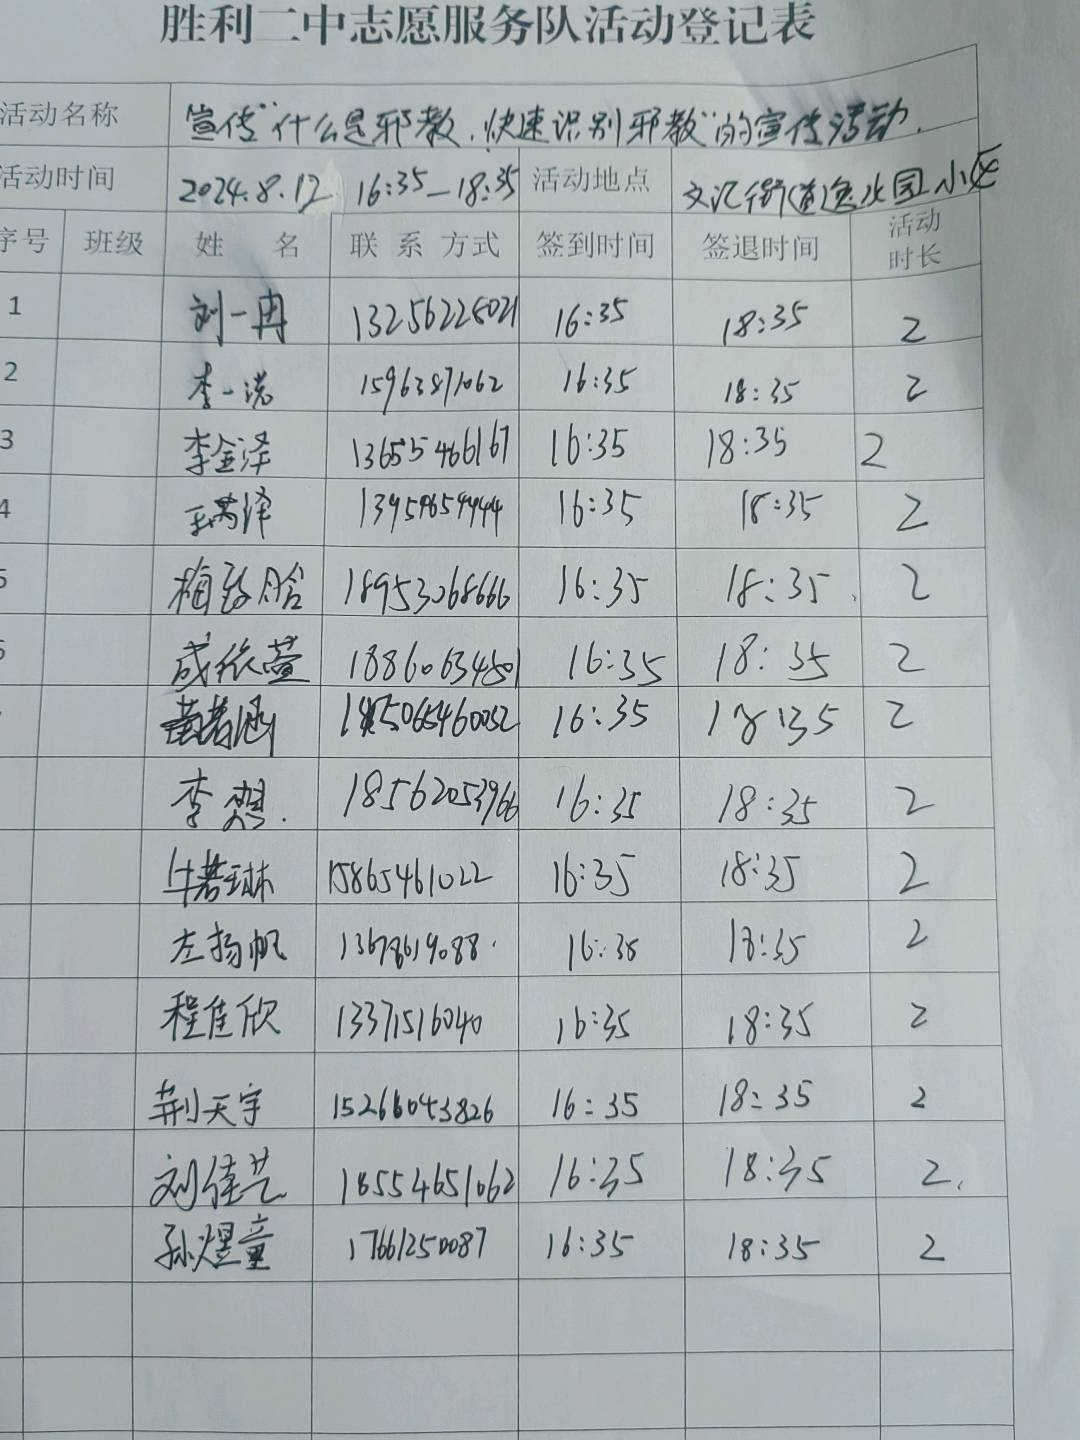 胜利二中志愿服务队活动登记表
活动名称 宣传"什么是邪教、快速识别邪教"的宣传活动.
活动时间 2024.8.12 16:35—18:35 活动地点 文汇街道逸水园小区
序号 班级 姓 名 联 系 方式 签到时间 签退时间 活动时长
1 刘一冉 13256228021 16:35 18:35 2
2 李一诺 15963871062 16:35 18:35 2
3 李金泽 13655466167 16:35 18:35 2
4 16:35 18:35 2
5 梅 晗 18953068666 16:35 18:35 2
6 成依萱 18860634501 16:35 18:35 2
黄若涵 16:35 18:35 2
李想. 18562053966 16:35 18:35 2
牛若琳 15865461022 16:35 18:35 2
左扬帆 16:35 18:35 2
程佳欣 13371516040 16:35 18:35 2
荆天宇 15266043826 16:35 18:35 2
刘佳艺 18554651062 16:35 18:35 2
孙煜童 17661250087 16:35 18:35 2